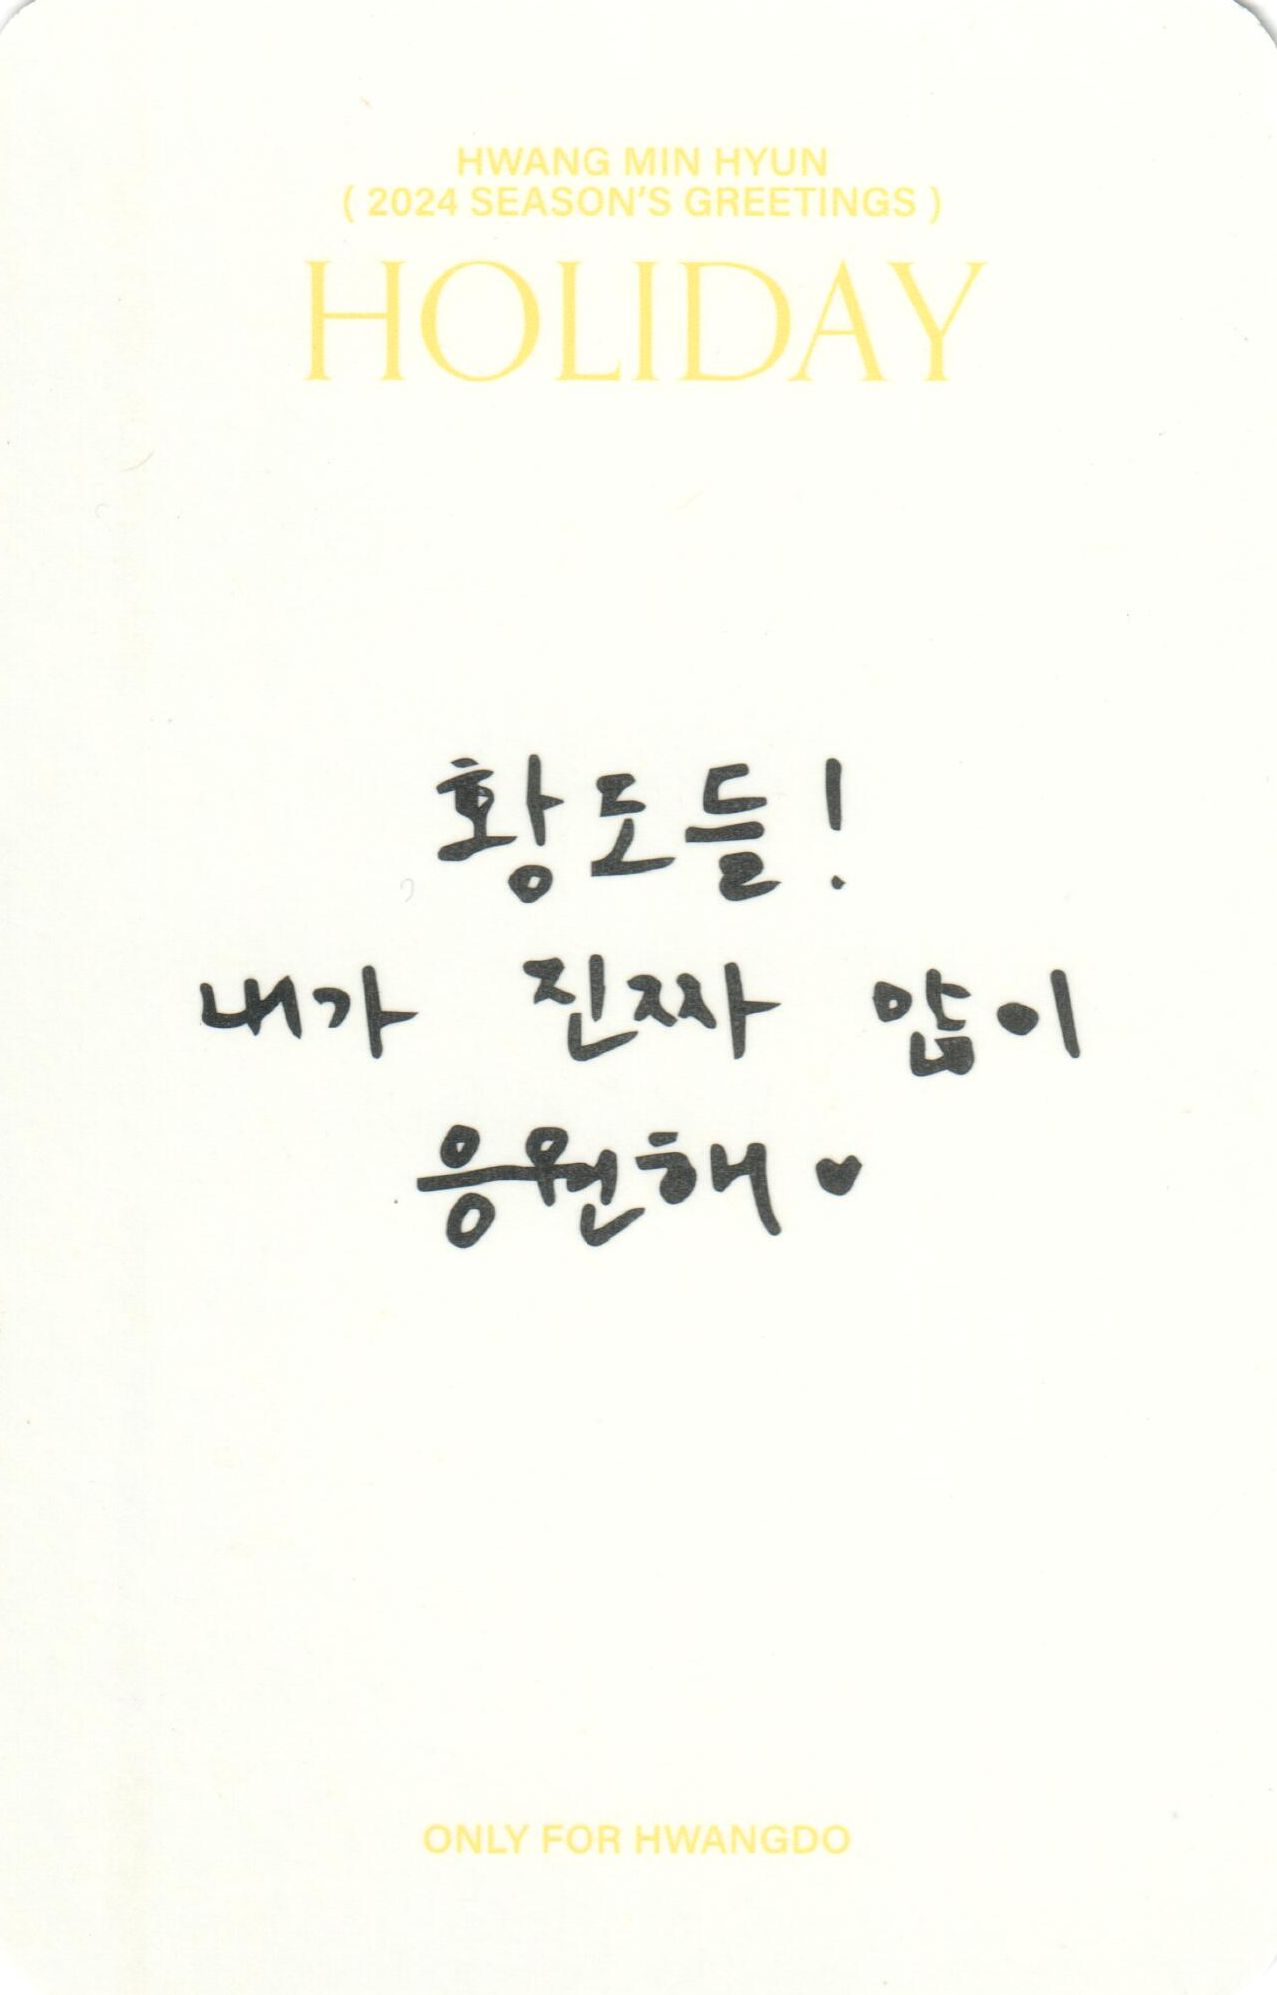 HWANG MIN HYUN
( 2024 SEASON'S GREETINGS )
HOLIDAY
황도들!
내가 진짜 많이
응원해♥
ONLY FOR HWANGDO